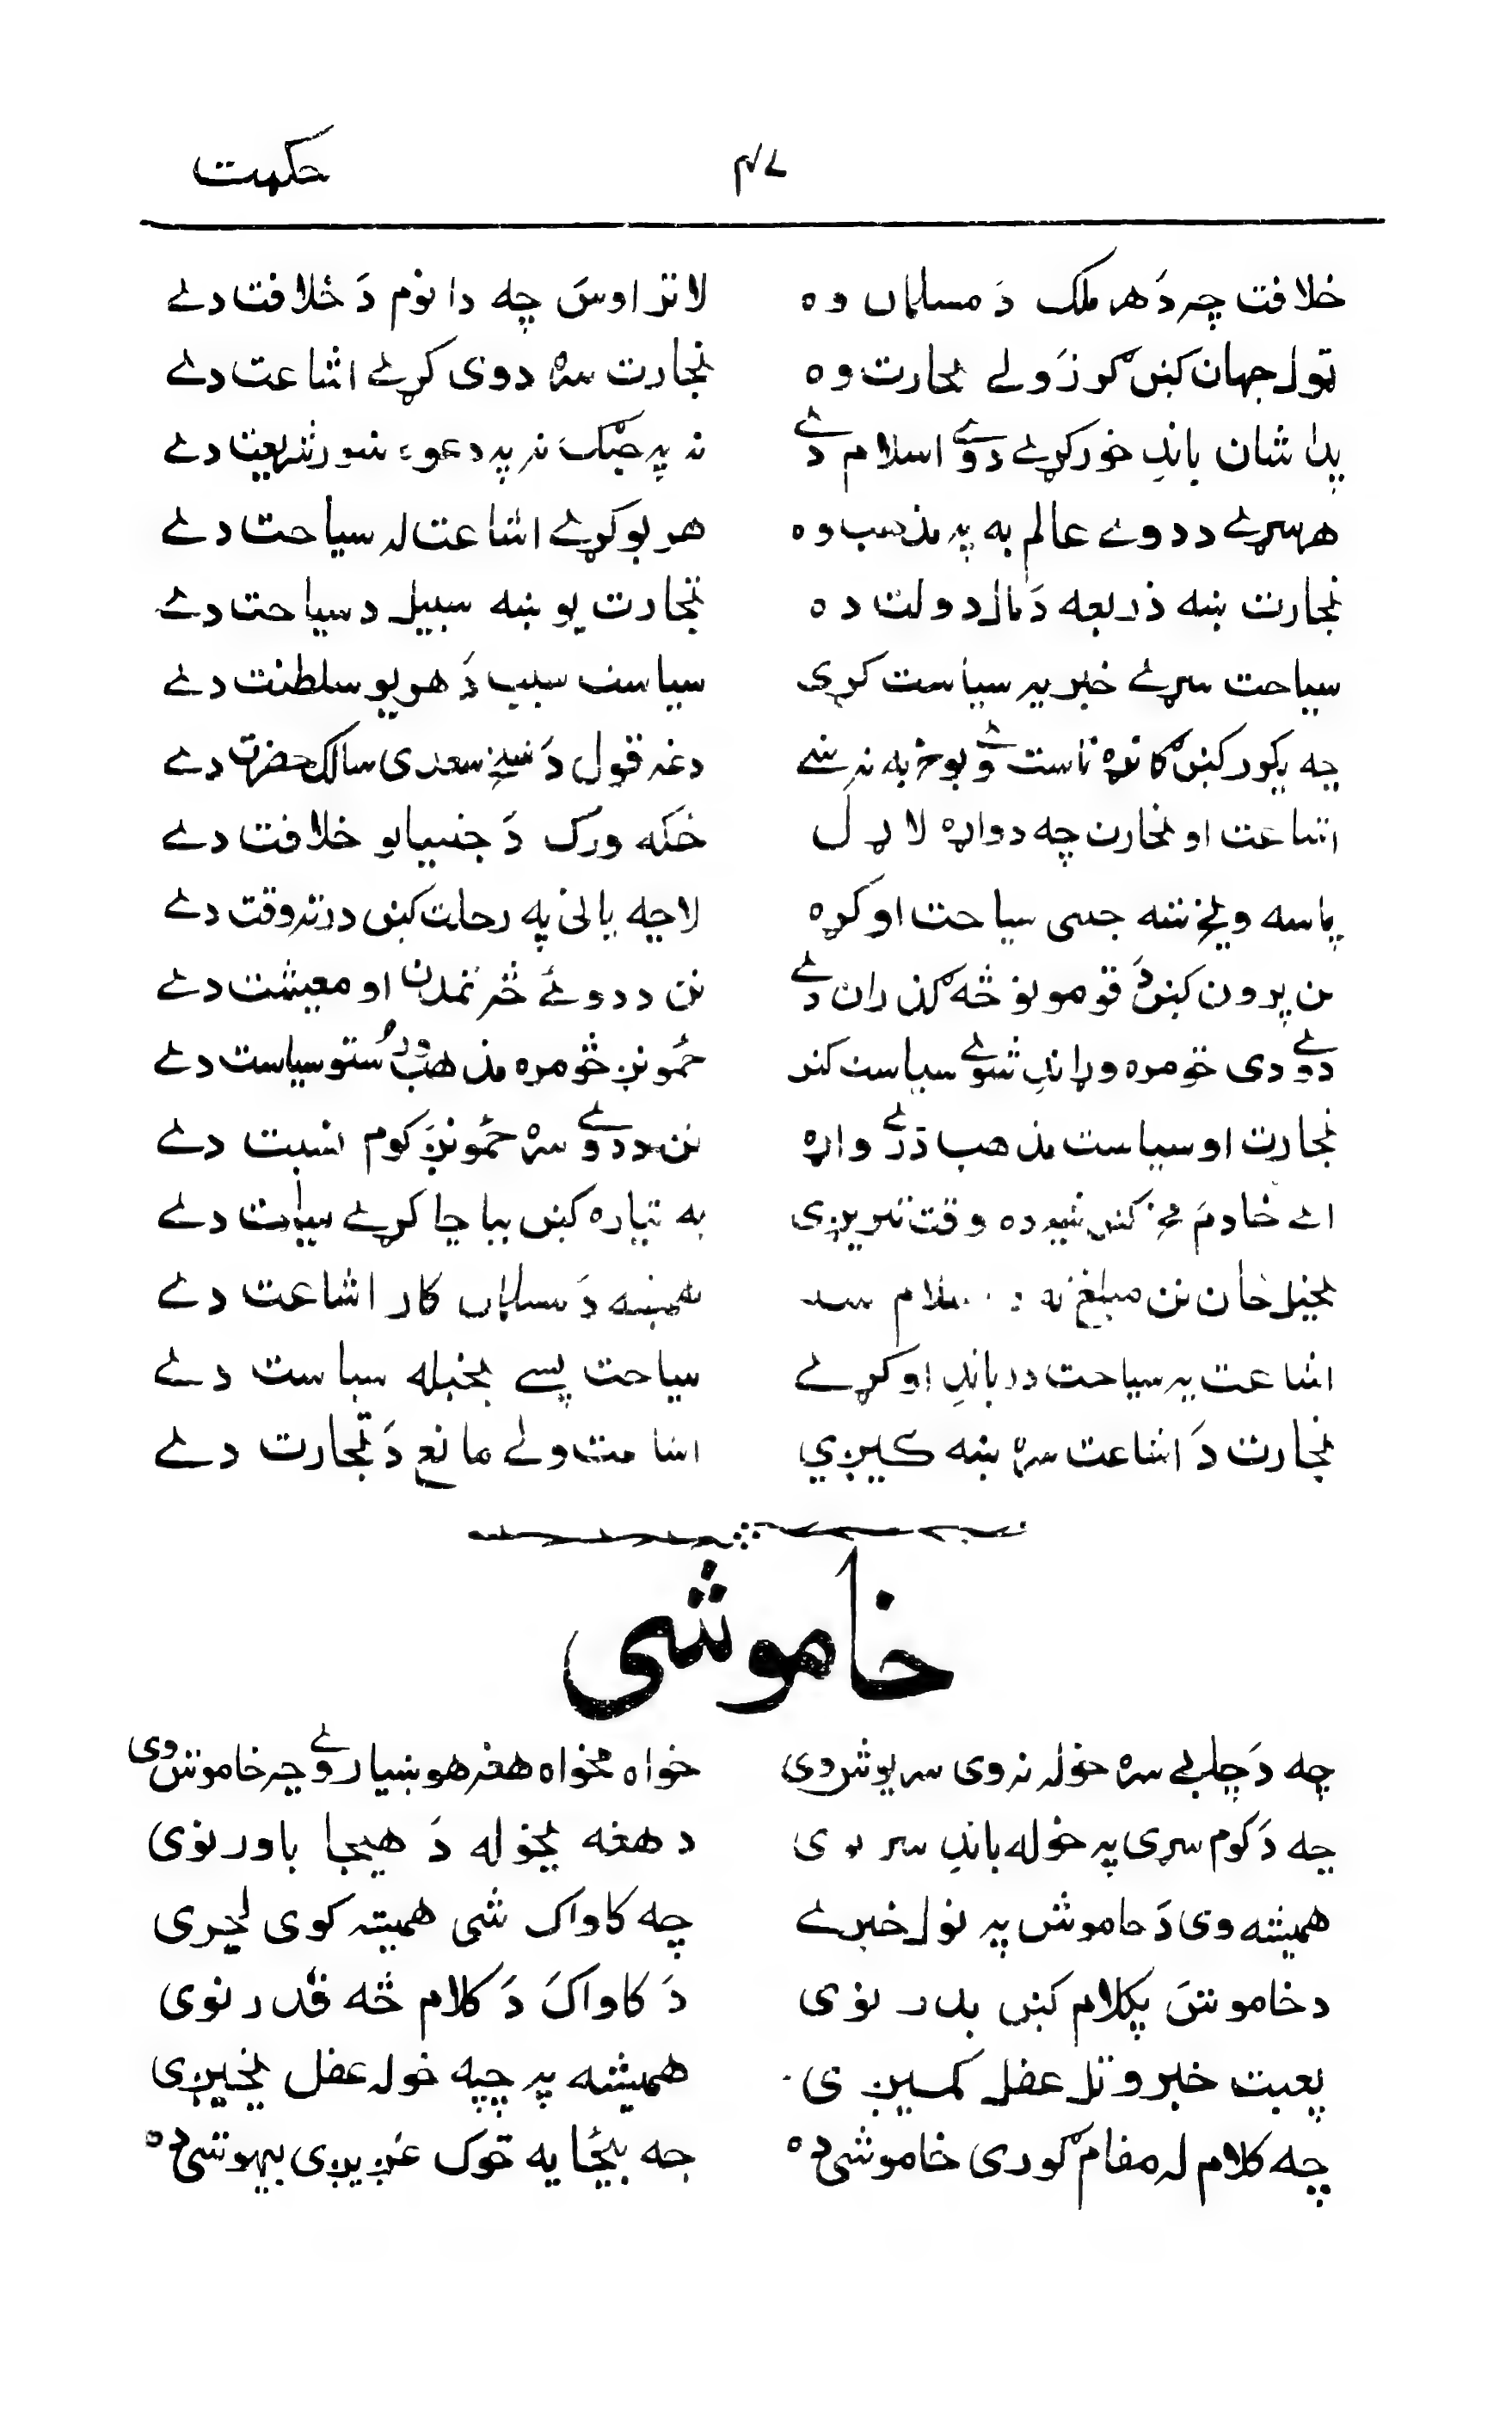 حکمت ۴۷
خلافت چہ دَ هر ملک دَ مسلمان وه لا تر اوسَ چه دا نوم دَ خلافت دے
ټول جهان کښ ګرزولے تجارت وه تجارت سره دوی کړے اشاعت دے
پدا شان باندِ خور کړے دوے اسلام دے نہ پہ جنګ نہ پہ دعوہ شور شریعت دے
هر سړے د دوے عالم به پہ مذهب وه هر یو کړے اشاعت لہ سیاحت دے
تجارت ښه ذریعه دَ مال دولت ده تجارت یو ښه سبیل د سیاحت دے
سیاحت سړے خبر پہ سیاست کړی سیاست سبب دَ هر یو سلطنت دے
چه پکور کښ کانړه ناست وے پوخ به نہ شے دغہ قول دَ شیخ سعدی سالک حضرت دے
اشاعت او تجارت چه دواړه لاړل ځکه ورک دَ خلافت دے
پاسه ویښ شه جسی سیاحت اوکړه لا چه بالی په رحلت کښ درته وقت دے
نن پرون کښ دَ قومونو څه ګذران دے نن د دوے څہ تمدن او معیشت دے
دوے دی څومره وړاندِ شوے سیاست کښ ځمونږ څومره مذهب ستو سیاست دے
تجارت او سیاست مذهب درے واړه نن د دوے سره ځمونږ کوم نسبت دے
اے خادمَ مخ کښ شپه ده وقت تیریږی په تیاره کښ بیا چا کړے سیاست دے
بخیل خان نن مبلغ نه سلام همیشه دَ مسلمان کار اشاعت دے
اشاعت پہ سیاحت در باندِ اوکړے سیاحت پسے بخپله سیاست دے
تجارت دَ اشاعت سره ښه کیږي اشاعت ولے مانع دَ تجارت دے
خاموشی
چه دَ چلپے سره خولہ نہ وی سرپوش وی خواه مخواه هغہ هوښیار وے چہ خاموش وی
چه دَ کوم سړی پہ خوله باندِ سر وی د هغه بخوله دَ هیچا باور نوی
همیشه وی دَ خاموش پہ تول خبرے چه کاواک شی همیشہ کوی لچری
د خاموشَ پکلام کښ بدر نوی دَ کاواکَ دَ کلام څه قدر نوی
پعبث خبرو تل عقل کمیږی همیشه پہ چپه خولہ عقل پخیږی
چه کلام لہ مقام ګوری خاموشی ده چه بیځایه څوک غږیږی بیهوشی ده